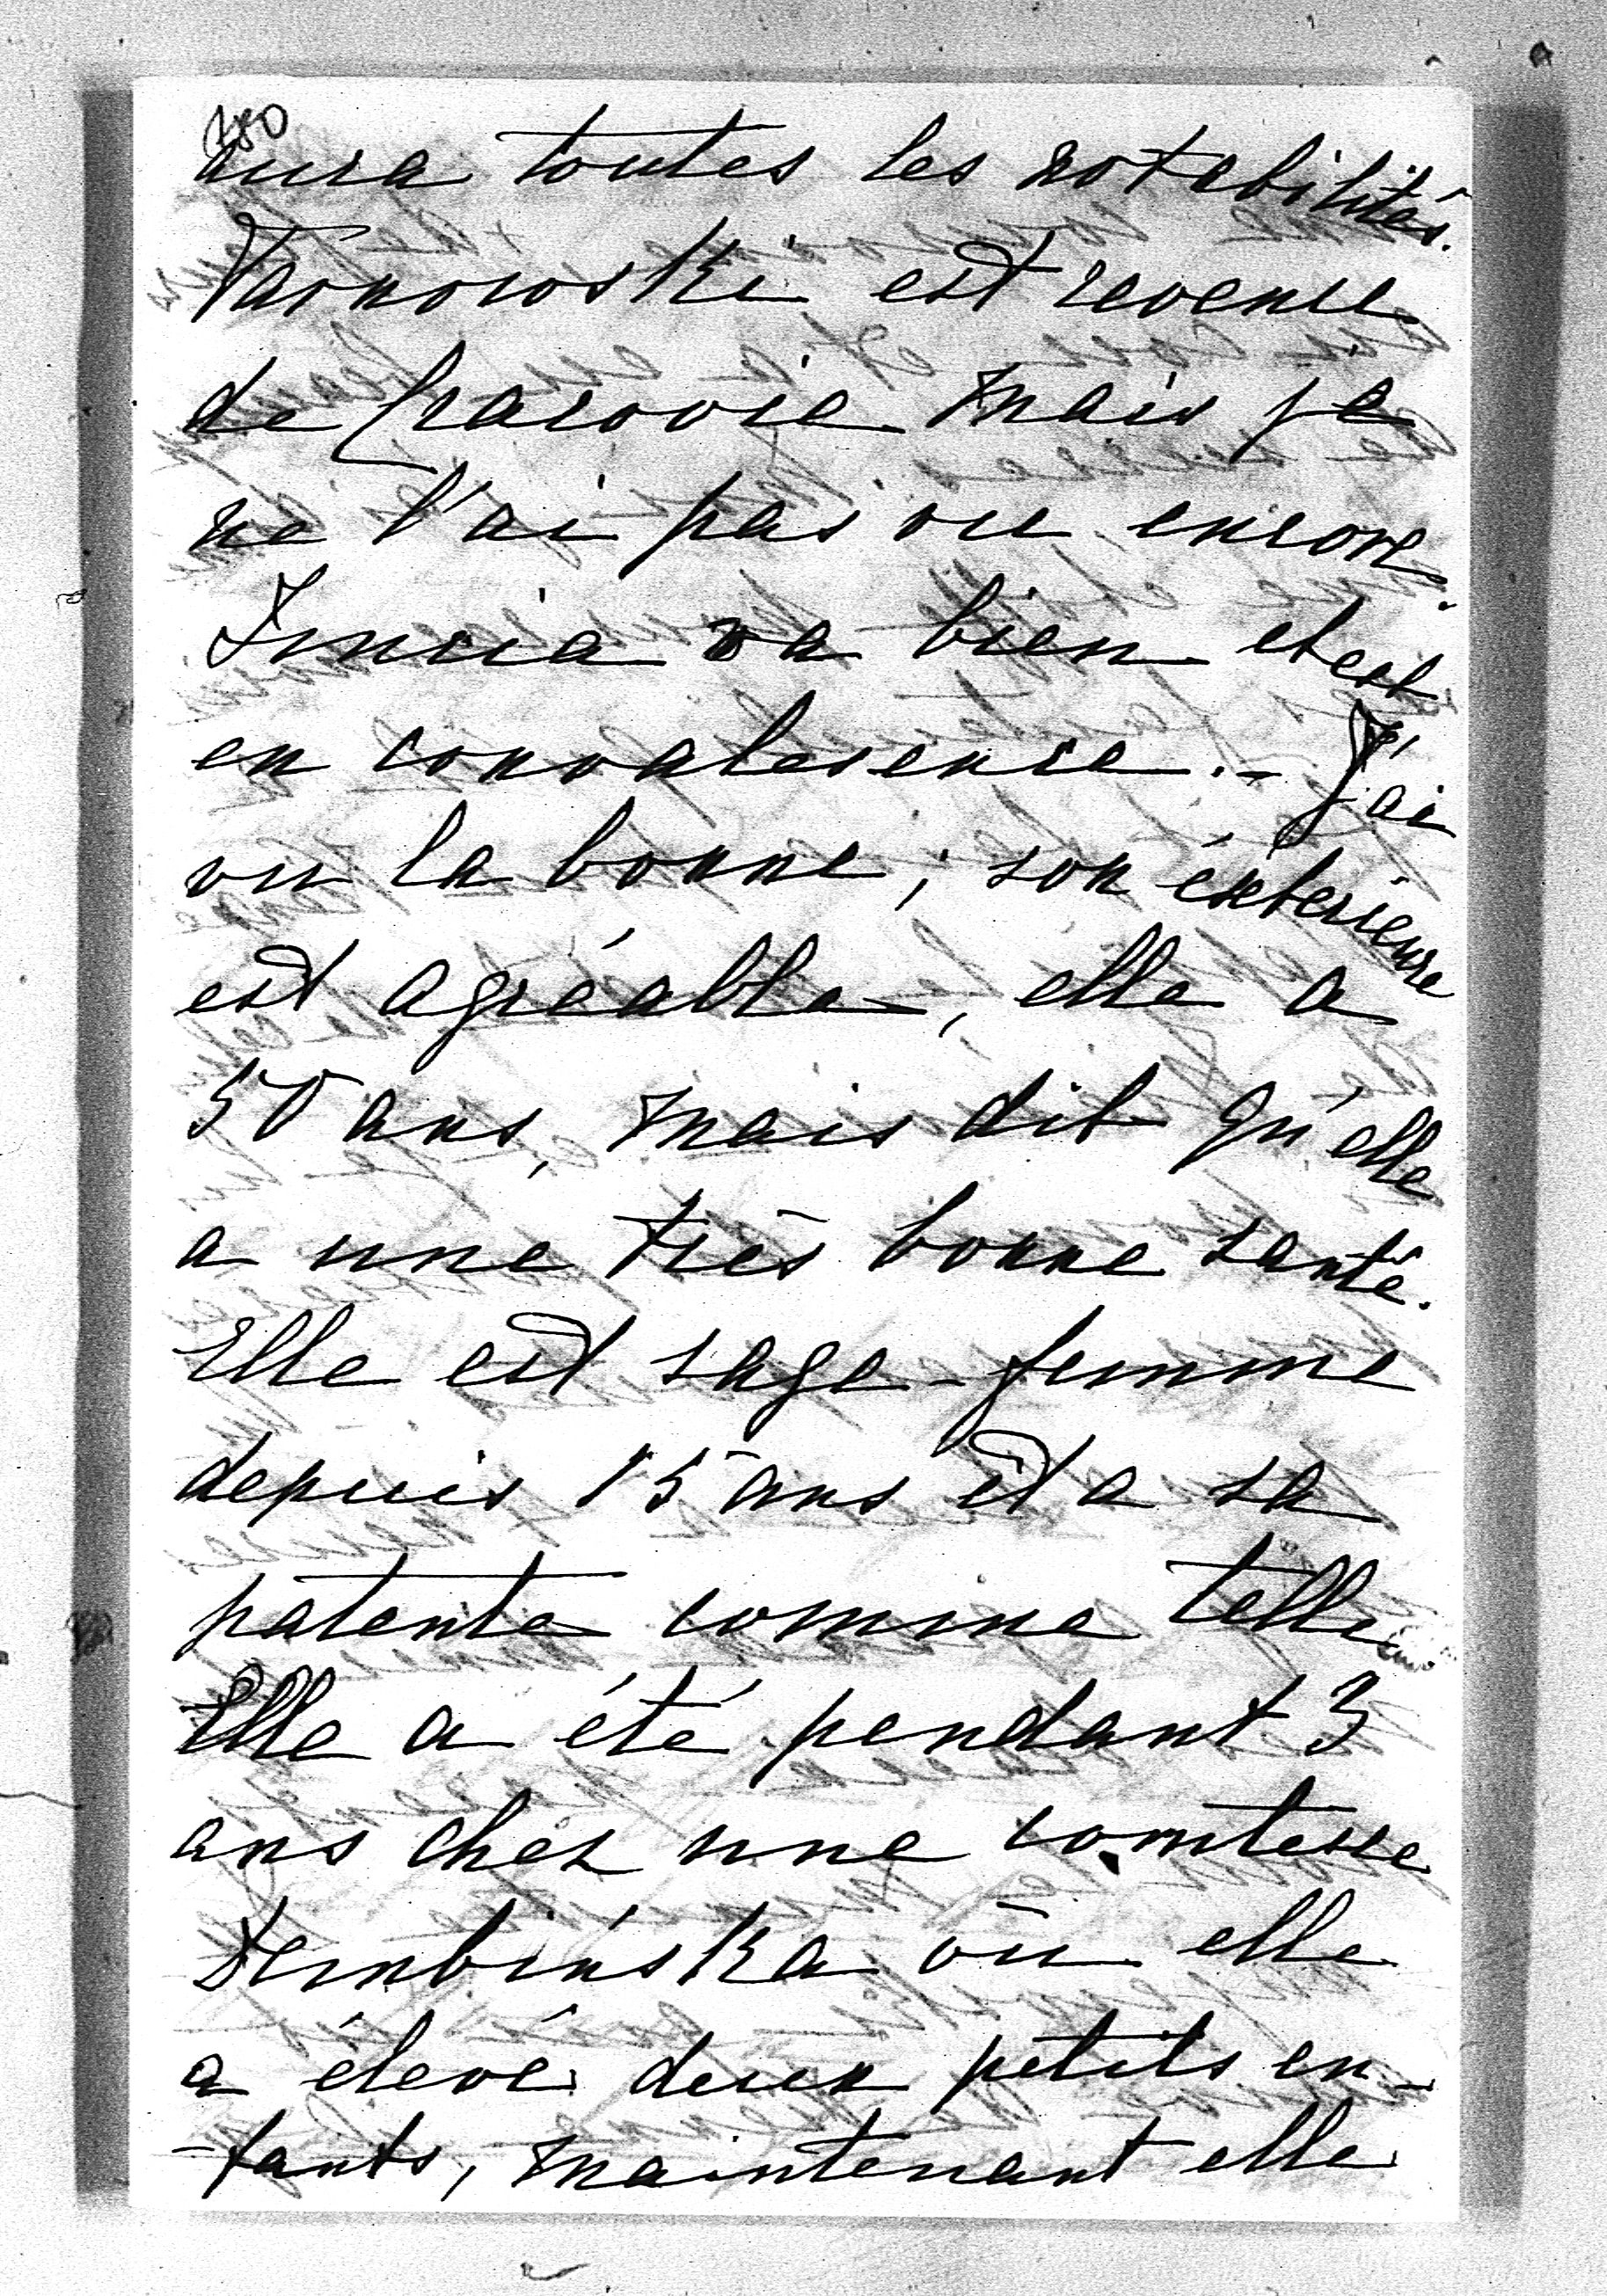 180
aura toutes les notabilités.
Tarnowski est revenu
de Cracovie mais je
ne l'ai pas vu encore.
Inucia va bien et est
en convalesence. - J'ai
vu la bonne; son éxterieure
est agréable, elle a
50 ans, mais dit qu'elle
a une très bonne santé.
Elle est sage-femme
depuis 15 ans et a sa
patente comme telle
Elle a été pendant 3
ans chez une comtesse
Dembińska où elle
a élevé deux petits en-
-fants, maintenant elle